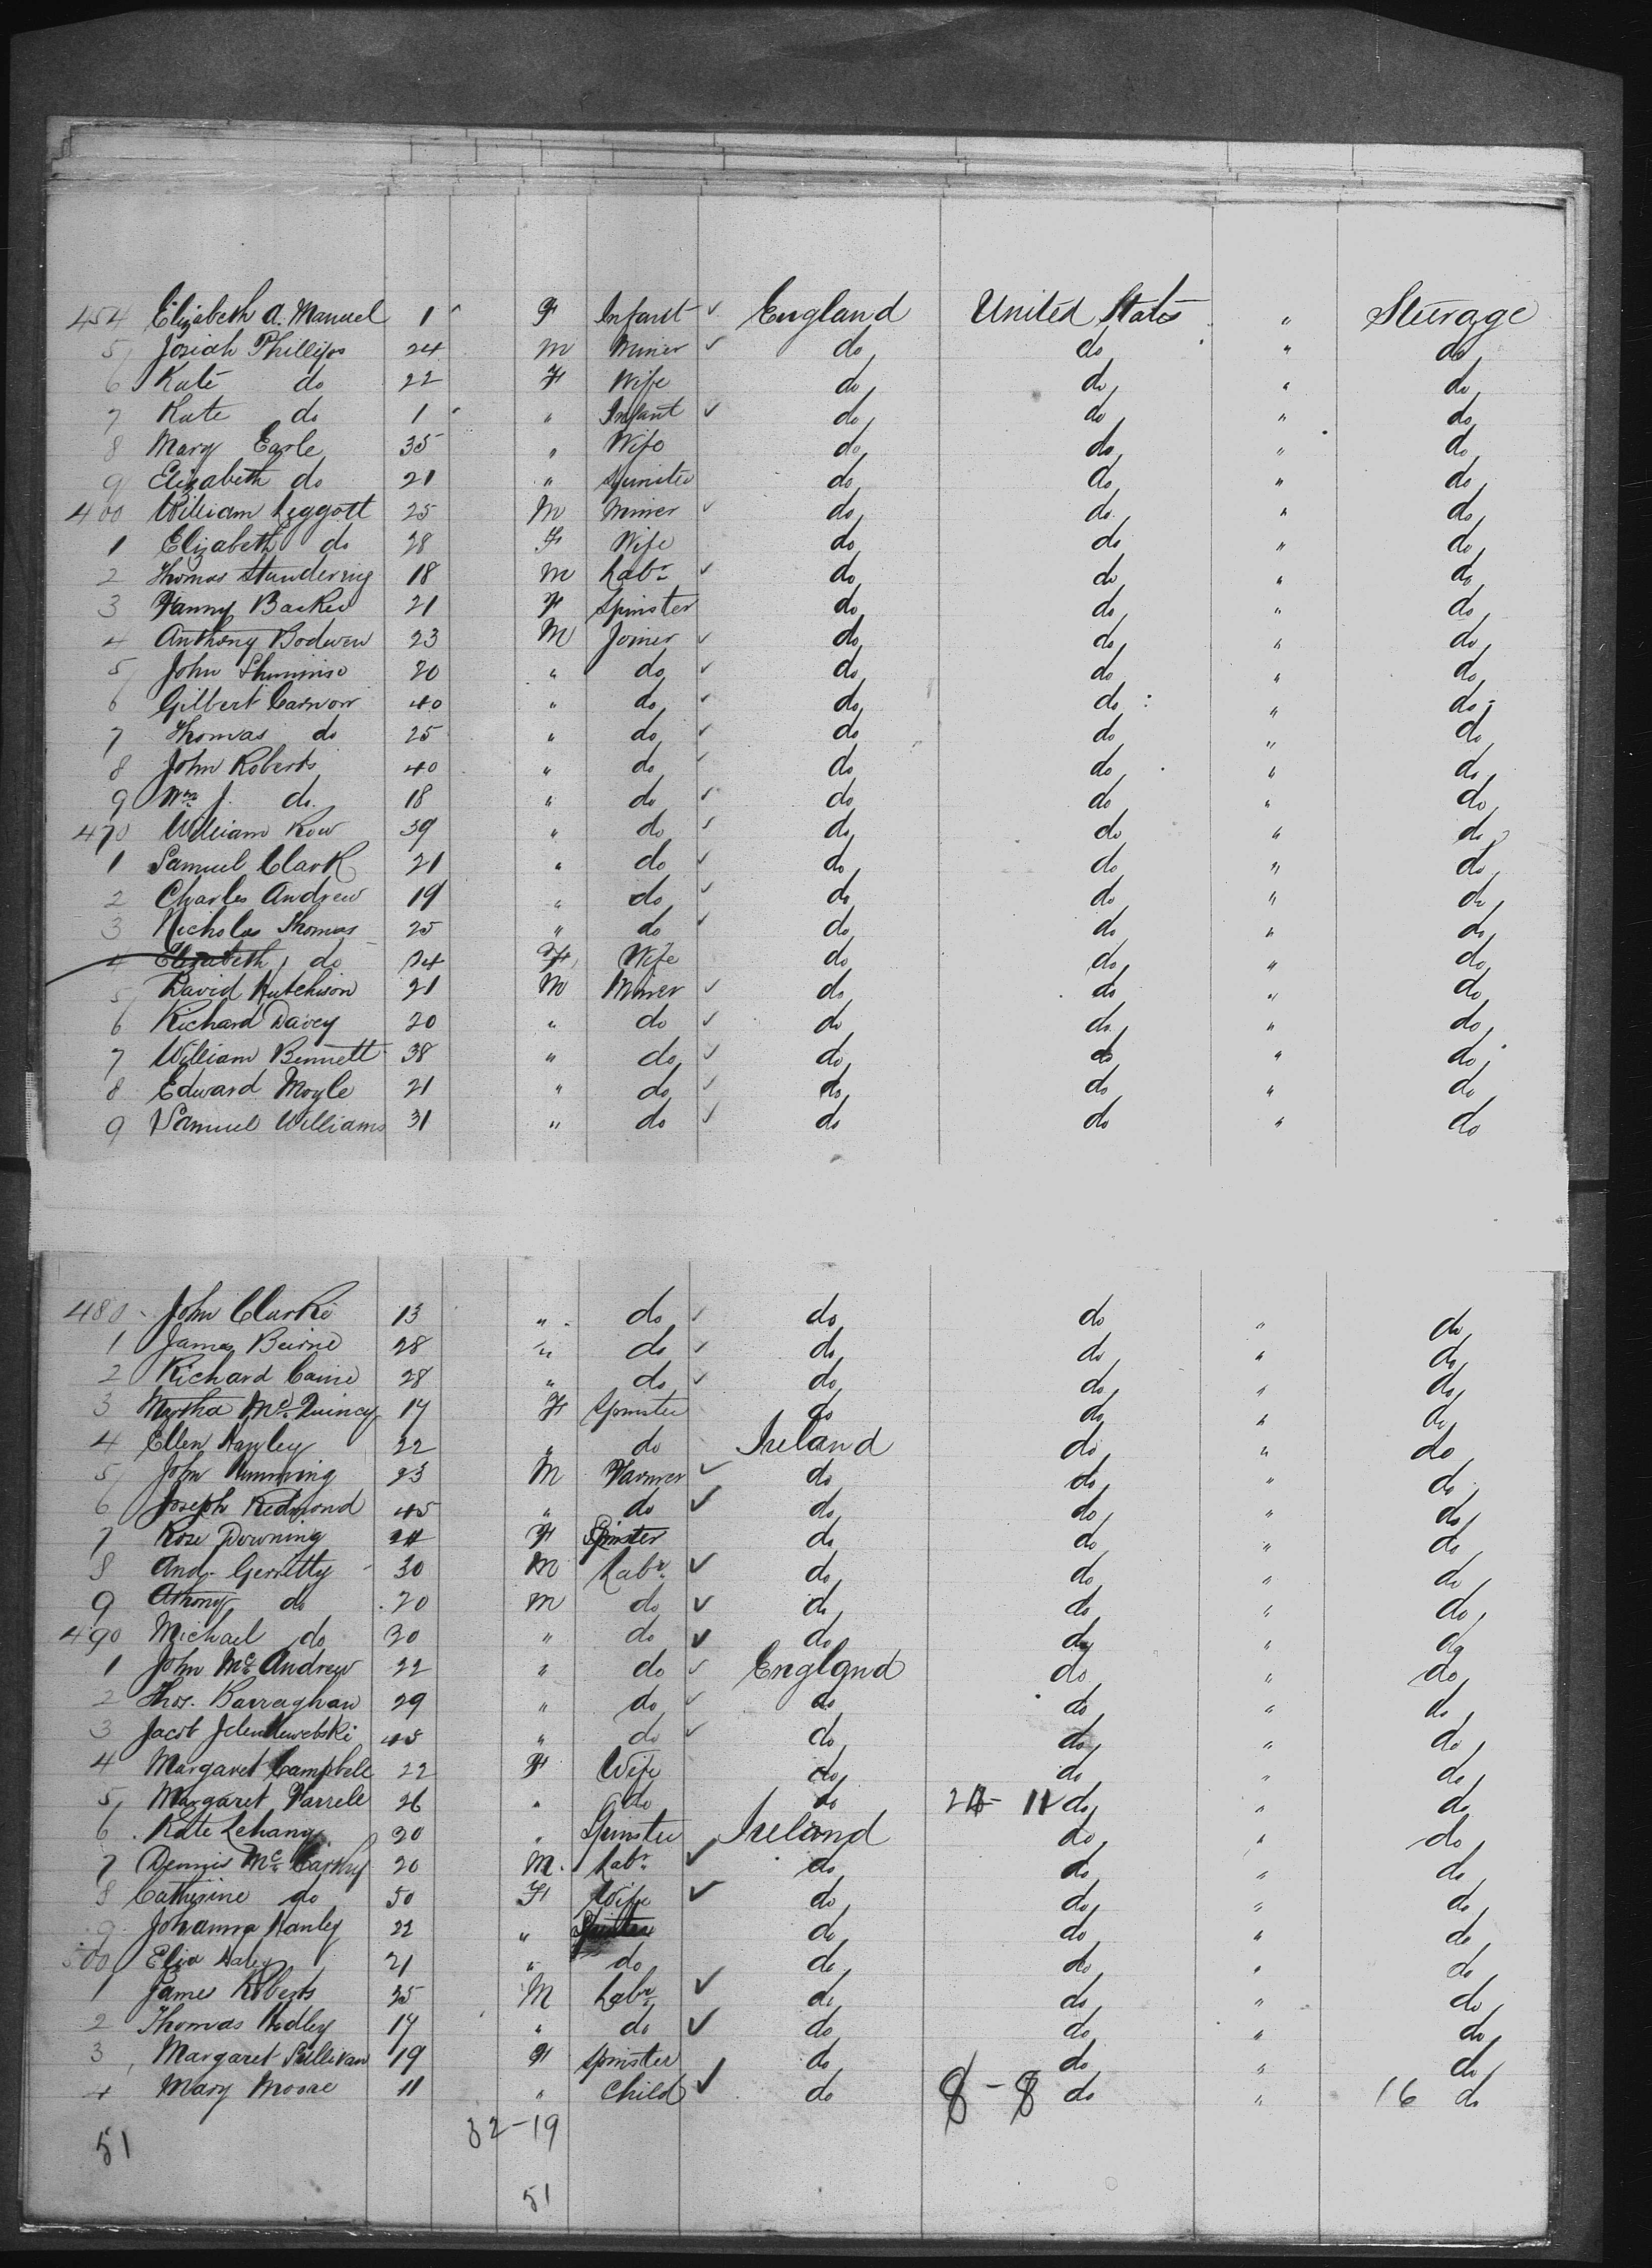 454 Elizabeth A. Manuel 1 F Infant ✓ England United States " Steerage
5 Josiah Phillips 24 M Miner ✓ do do " do
6 Kate do 22 F Wife do do " do
7 Kate do 1 " Infant ✓ do do " do
8 Mary Earle 35 " Wife do do " do
9 Elizabeth do 21 " Spinster do do " do
460 William Leggott 25 M Miner ✓ do do " do
1 Elizabeth do 28 F Wife do do " do
2 Thomas Standering 18 M Labr ✓ do do " do
3 Fanny Barker 21 F Spinster do do " do
4 Anthony Bodwen 23 M Joiner ✓ do do " do
5 John 20 " do ✓ do do " do
6 Gilbert Carnow 40 " do ✓ do do " do
7 Thomas do 25 " do ✓ do do " do
8 John Roberts 40 " do ✓ do do " do
9 Wm J. do 18 " do ✓ do do " do
470 William Row 39 " do ✓ do do " do
1 Samuel Clark 21 " do ✓ do do " do
2 Charles Andrew 19 " do ✓ do do " do
3 Nicholas Thomas 25 " do ✓ do do " do
4 Elizabeth do 24 F Wife do do " do
5 David Hutchison 21 M Miner ✓ do do " do
6 Richard Davey 20 " do ✓ do do " do
7 William Bennett 38 " do ✓ do do " do
8 Edward Moyle 21 " do ✓ do do " do
9 Samuel Williams 31 " do ✓ do do " do
480 John Clarke 13 " do ✓ do do " do
1 James Beirne 28 " do ✓ do do " do
2 Richard Caine 28 " do ✓ do do " do
3 Martha McQuincy 17 F Spinster do do " do
4 Ellen Hanley 22 " do Ireland do " do
5 John 23 M Farmer ✓ do do " do
6 Joseph Redmond 45 " do ✓ do do " do
7 Rose Downing F Spinster do do " do
8 And. Gerretty 30 M Labr ✓ do do " do
9 Athony do 20 M do ✓ do do " do
490 Michael do 30 " do ✓ do do " do
1 John McAndrew 22 " do ✓ England do " do
2 Thos. Barraghan 29 " do ✓ do do " do
3 Jacob 45 " do ✓ do do " do
4 Margaret Campbell 22 F Wife do do " do
5 Margaret Farrell 26 " do do 11 do " do
6 Kate Lehany 30 " Spinster Ireland do " do
7 Dennis McCarthy 20 M. Labr ✓ do do " do
8 Catherine do 50 F Wife ✓ do do " do
9 Johanna Hanley 22 " Spinster do do " do
500 Eliza Daley 21 " do do do " do
1 James Roberts 25 M Labr ✓ do do " do
2 Thomas Hedley 17 " do ✓ do do " do
3 Margaret Sullivan 19 F Spinster do do " do
4 Mary Moore 11 " Child ✓ do 8-8 do " 16 do
51 32-19
51